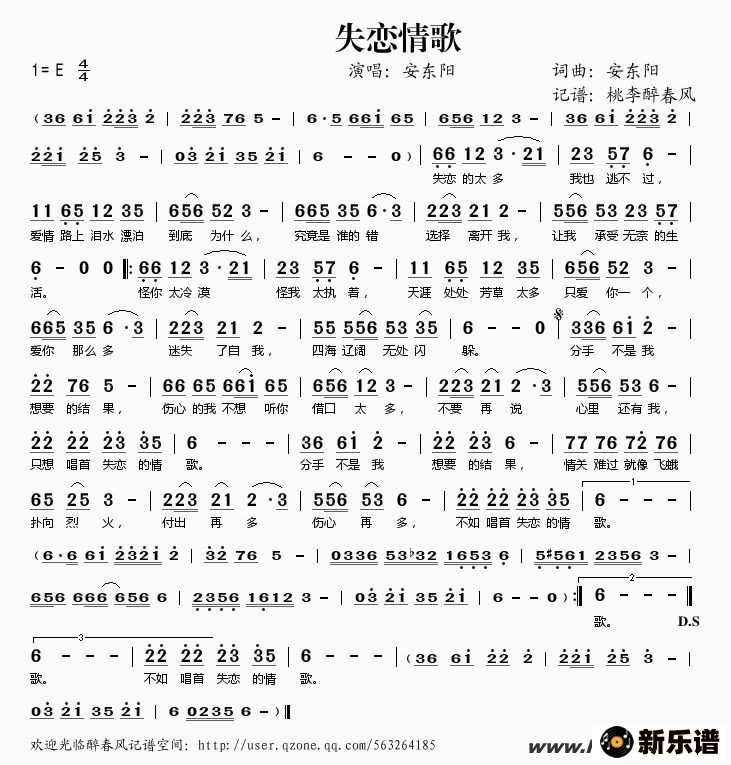 失恋情歌
1= E 4/4 演唱：安东阳 词曲：安东阳
记谱：桃李醉春风
( 36 61 223 2 | 223 76 5 - | 6·5 661 65 | 656 12 3 - | 36 61 223 2 |
221 25 3 - | 03 21 35 21 | 6 - - 0 ) | 66 12 3·21 | 23 57 6 - |
失恋 的太 多 我也 逃不 过，
11 65 12 35 | 656 52 3 - | 665 35 6·3 | 223 21 2 - | 556 53 23 57 |
爱情 路上 泪水 漂泊 到底 为什 么， 究竟是 谁的 错 选择 离开 我， 让我 承受 无奈 的生
6 - 0 0 |: 66 12 3·21 | 23 57 6 - | 11 65 12 35 | 656 52 3 - |
活。 怪你 太冷 漠 怪我 太执 着， 天涯 处处 芳草 太多 只爱 你一 个，
665 35 6·3 | 223 21 2 - | 55 556 53 35 | 6 - - 0 | 336 61 2 - |
爱你 那么 多 迷失 了自 我， 四海 辽阔 无处 闪 躲。 分手 不是 我
22 76 5 - | 66 65 661 65 | 656 12 3 - | 223 21 2·3 | 556 53 6 - |
想要 的结 果， 伤心 的我 不想 听你 借口 太 多， 不要 再 说 心里 还有 我，
22 22 23 35 | 6 - - - | 36 61 2 - | 22 23 6 - | 77 76 72 76 |
只想 唱首 失恋 的情 歌。 分手 不是 我 想要 的结 果， 情关 难过 就像 飞蛾
65 25 3 - | 223 21 2·3 | 556 53 6 - | 22 22 23 35 | 6 - - - |
1
扑向 烈 火， 付出 再 多 伤心 再 多， 不如 唱首 失恋 的情 歌。
( 6·6 61 2321 2 | 32 76 5 - | 0336 53♭32 1653 6 | 5♯561 2356 3 - |
656 666 656 6 | 2356 1612 3 - | 03 21 35 21 | 6 - - 0 ) :| 6 - - - |
2
歌。 D.S
3
6 - - - | 22 22 23 35 | 6 - - - | ( 36 61 22 2 | 22 21 25 3 - |
歌。 不如 唱首 失恋 的情 歌。
03 21 35 21 | 6 0235 6 - ) |
欢迎光临醉春风记谱空间：http://user.qzone.qq.com/563264185
新乐谱